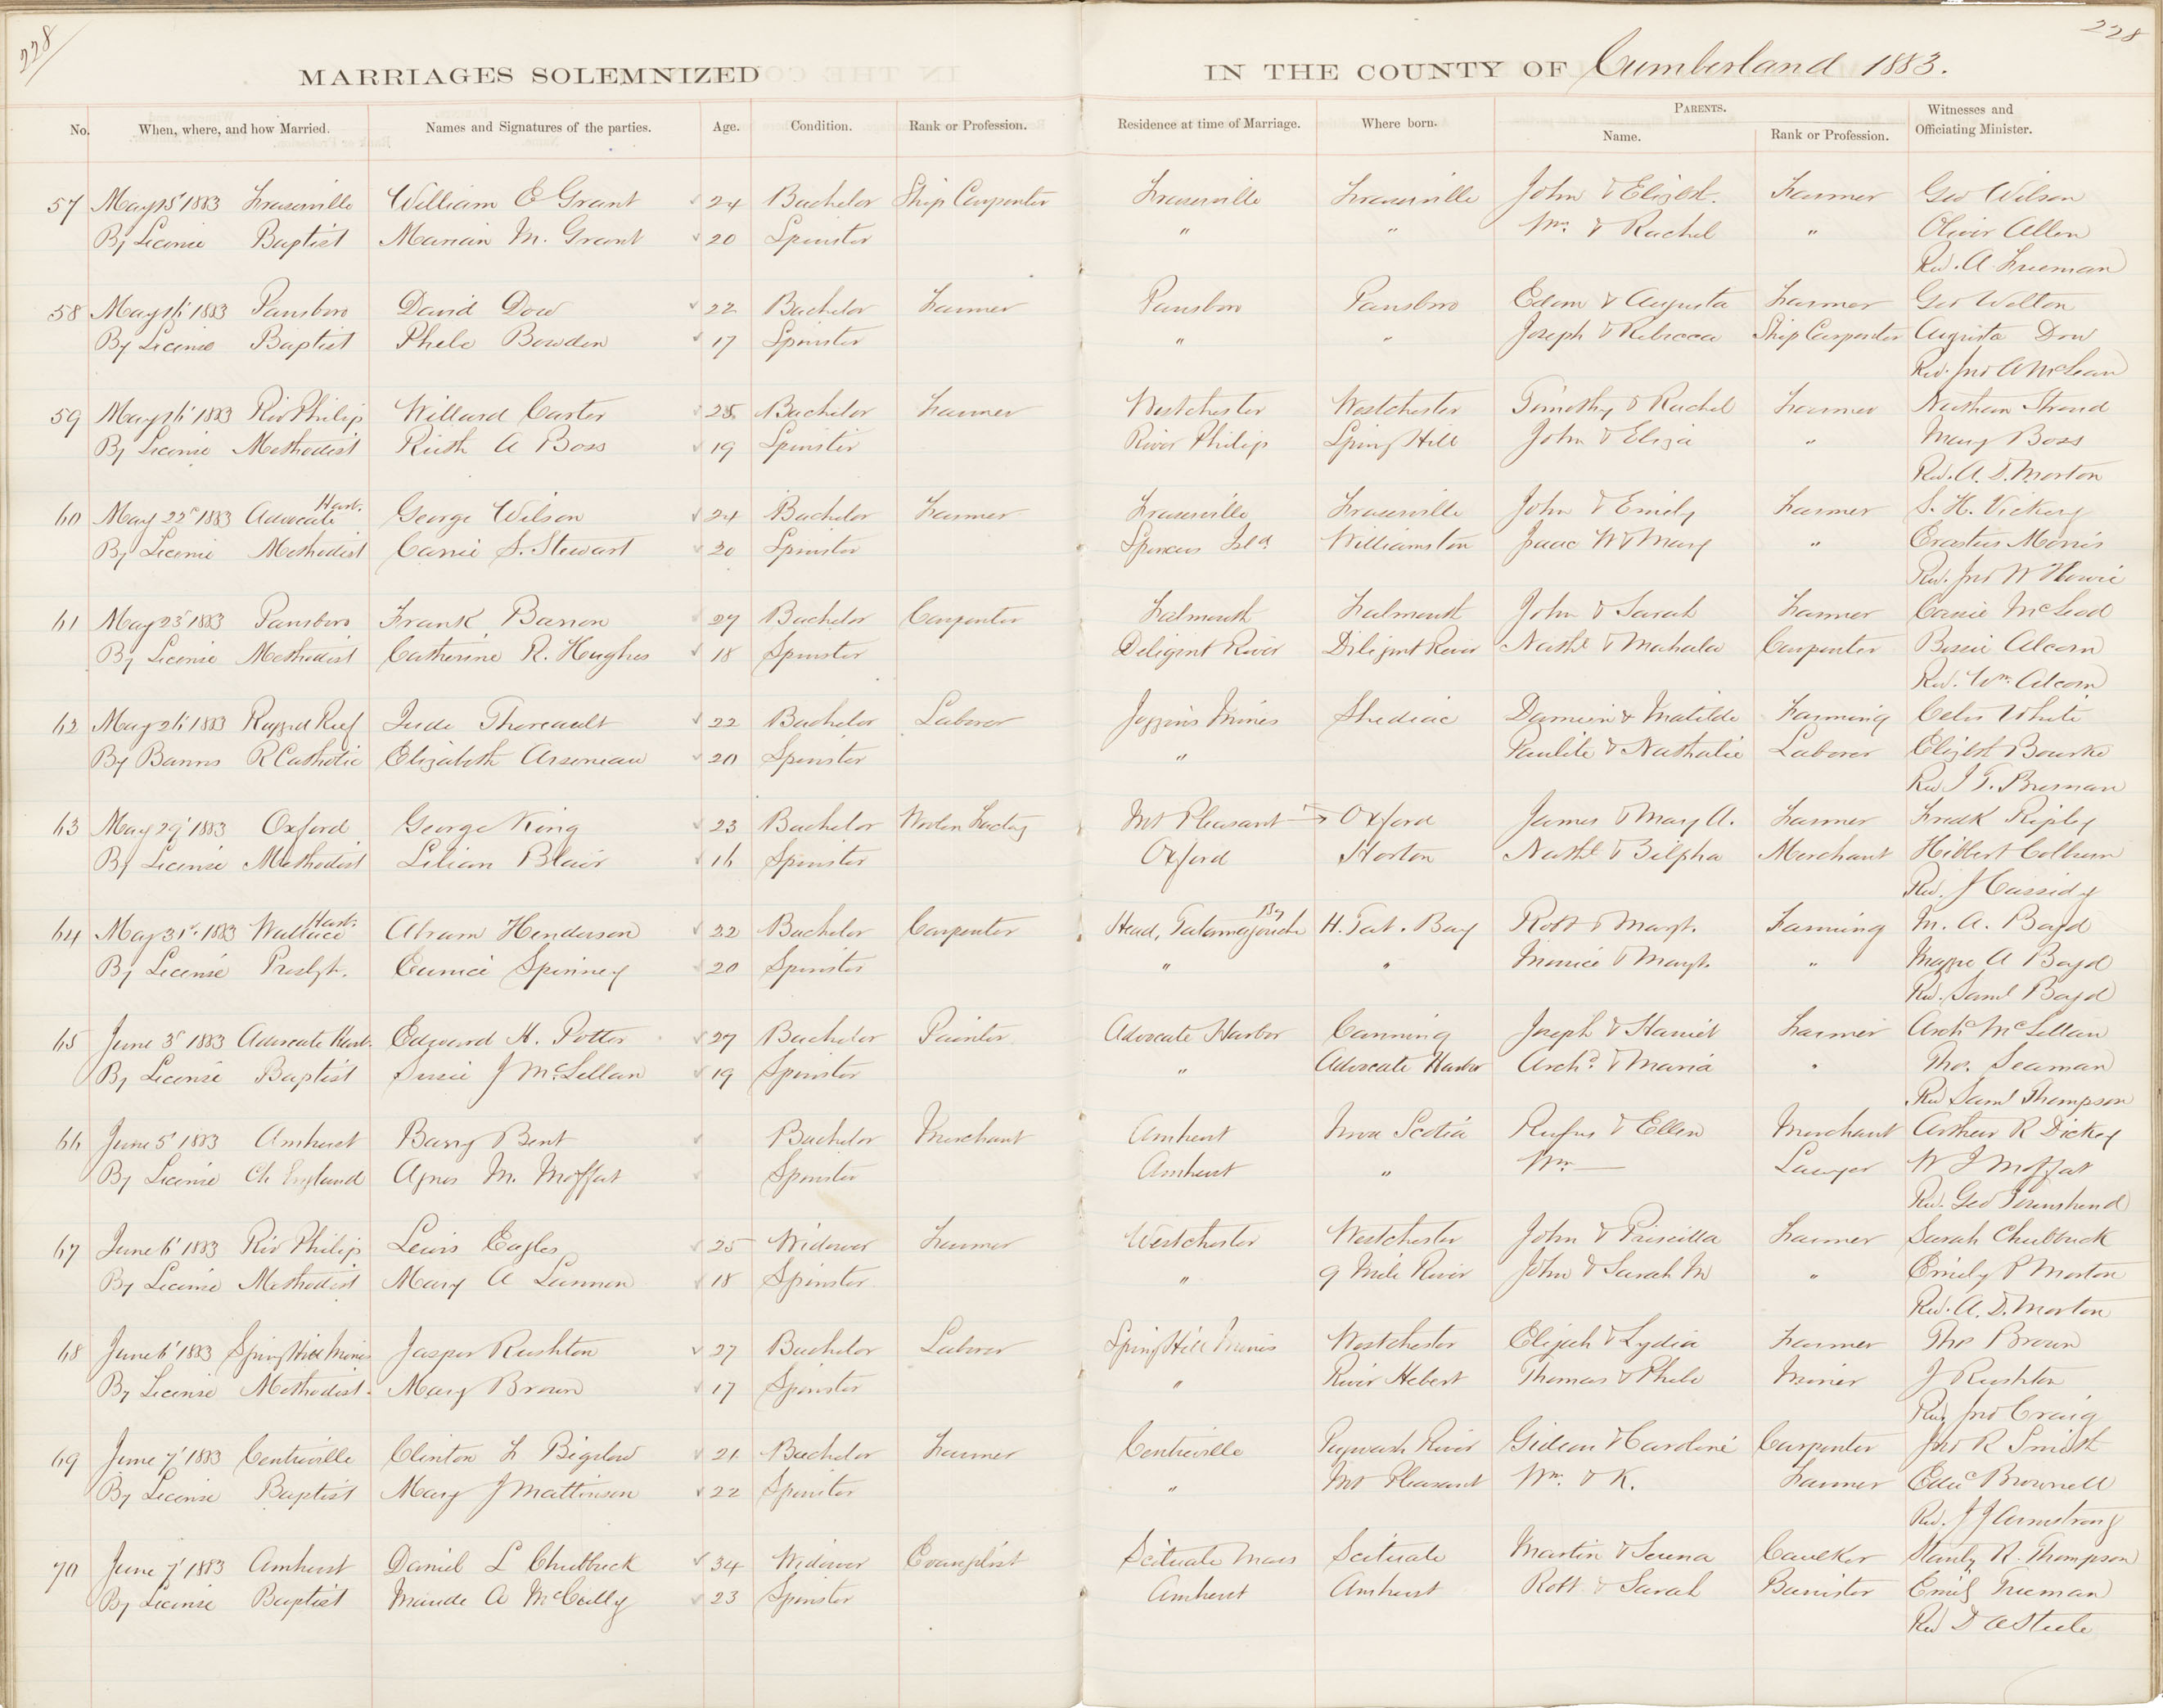 228
228
MARRIAGES SOLEMNIZED IN THE COUNTY OF Cumberland 1883.
No. When, where, and how Married. Names and Signatures of the parties. Age. Condition. Rank or Profession. Residence at time of Marriage. Where born. PARENTS. Name. Rank or Profession. Witnesses and Officiating Minister.
57 May 15' 1883 Fraserville William E Grant 24 Bachelor Ship Carpenter Fraserville Fraserville John & Elizbt. Farmer Geo Wilson
By License Baptist M. Grant 20 Spinster " " Wm. & Rachel " Oliver Allen
Rev. A. Freeman
58 May 16' 1883 Parrsboro David Dow 22 Bachelor Farmer Parrsboro Parrsboro Edom & Augusta Farmer Geo Welton
By License Baptist Phebe Bowden 17 Spinster " " Joseph & Rebecca Ship Carpenter Augusta Dow
Rev. Jno A McLean
59 May 16' 1883 Riv Philip Willard Carter 25 Bachelor Farmer Westchester Westchester Timothy & Rachel Farmer Nathan Stroud
By License Methodist Ruth A Boss 19 Spinster River Philip Spring Hill John & Eliza " Mary Boss
Rev. A. D. Morton
60 May 22d 1883 Advocate Harb. George Wilson 24 Bachelor Farmer Fraserville Fraserville John & Emily Farmer S. H. Vickery
By License Methodist Carrie S. Stewart 20 Spinster Spencers Isld Williamston Isaac W & Mary " Erastus Morris
Rev. Jno W Howie
61 May 23' 1883 Parrsboro Frank Barron 27 Bachelor Carpenter Falmouth Falmouth John & Sarah Farmer Carrie McLeod
By License Methodist Catherine R. Hughes 18 Spinster Deligint River Diligent River Nathl & Mahala Carpenter Bessie Alcorn
Rev. Wm. Alcorn
62 May 26' 1883 Ragged Reef Jude Thereault 22 Bachelor Laborer Joggins Mines Shediac Damien & Matilde Farming Celes White
By Banns R Catholic Elizabeth Arseneau 20 Spinster " & Nathalie Laborer Elizbt Bourke
Rev J T. Bresnan
63 May 29' 1883 Oxford George King 23 Bachelor Woolen Factory Mt Pleasant Oxford James & Mary A. Farmer Fredk Ripley
By License Methodist Lilian Blair 16 Spinster Oxford Horton Nathl & Zilpha Merchant Hibbert Colburn
Rev. J Cassidy
64 May 31st 1883 Wallace Harb. Abram Henderson 22 Bachelor Carpenter Head, Tatamagouche By H. Tat. Bay Robt & Margt. Farming M. A. Boyd
By License Presbyt. Eunice Spinney 20 Spinster " " & Margt. " Maggie A Boyd
Rev. Saml Boyd
65 June 3' 1883 Advocate Harb. Edward H. Potter 27 Bachelor Painter Advocate Harbor Canning Joseph & Harriet Farmer Archd McLellan
By License Baptist Susie J McLellan 19 Spinster " Advocate Harbor Archd. & Maria " Tho. Seaman
Rev Saml Thompson
66 June 5' 1883 Amherst Barry Bent Bachelor Merchant Amherst Nova Scotia Rufus & Ellen Merchant Arthur R Dickey
By License Ch England Agnes M. Moffat Spinster Amherst " Wm — Lawyer W J Moffat
Rev. Geo Townshend
67 June 6' 1883 Riv Philip Lewis Eagles 25 Widower Farmer Westchester Westchester John & Priscilla Farmer Sarah Chubbuck
By License Methodist Mary A Lannon 18 Spinster " 9 Mile River John & Sarah M " Emily P Morton
Rev. A. D. Morton
68 June 6' 1883 Spring Hill Mines Jasper Rushton 27 Bachelor Laborer Spring Hill Mines Westchester Elijah & Lydia Farmer Tho Brown
By License Methodist. Mary Brown 17 Spinster " River Hebert Thomas & Phebe Miner J Rushton
Rev. Jno Craig
69 June 7' 1883 Centreville Clinton F Bigelow 21 Bachelor Farmer Centreville Pugwash River Gideon & Caroline Carpenter Jno R Smith
By License Baptist Mary J Mattinson 22 Spinster " Mt Pleasant Wm. & K. Farmer Edwd Brownell
Rev. J J Armstrong
70 June 7' 1883 Amherst Daniel L Chubbuck 34 Widower Evangelist Scituate Mass Scituate Martin & Serena Caulker Stanly R. Thompson
By License Baptist Maude A McCully 23 Spinster Amherst Amherst Robt & Sarah Barrister Emily Freeman
Rev D A Steele